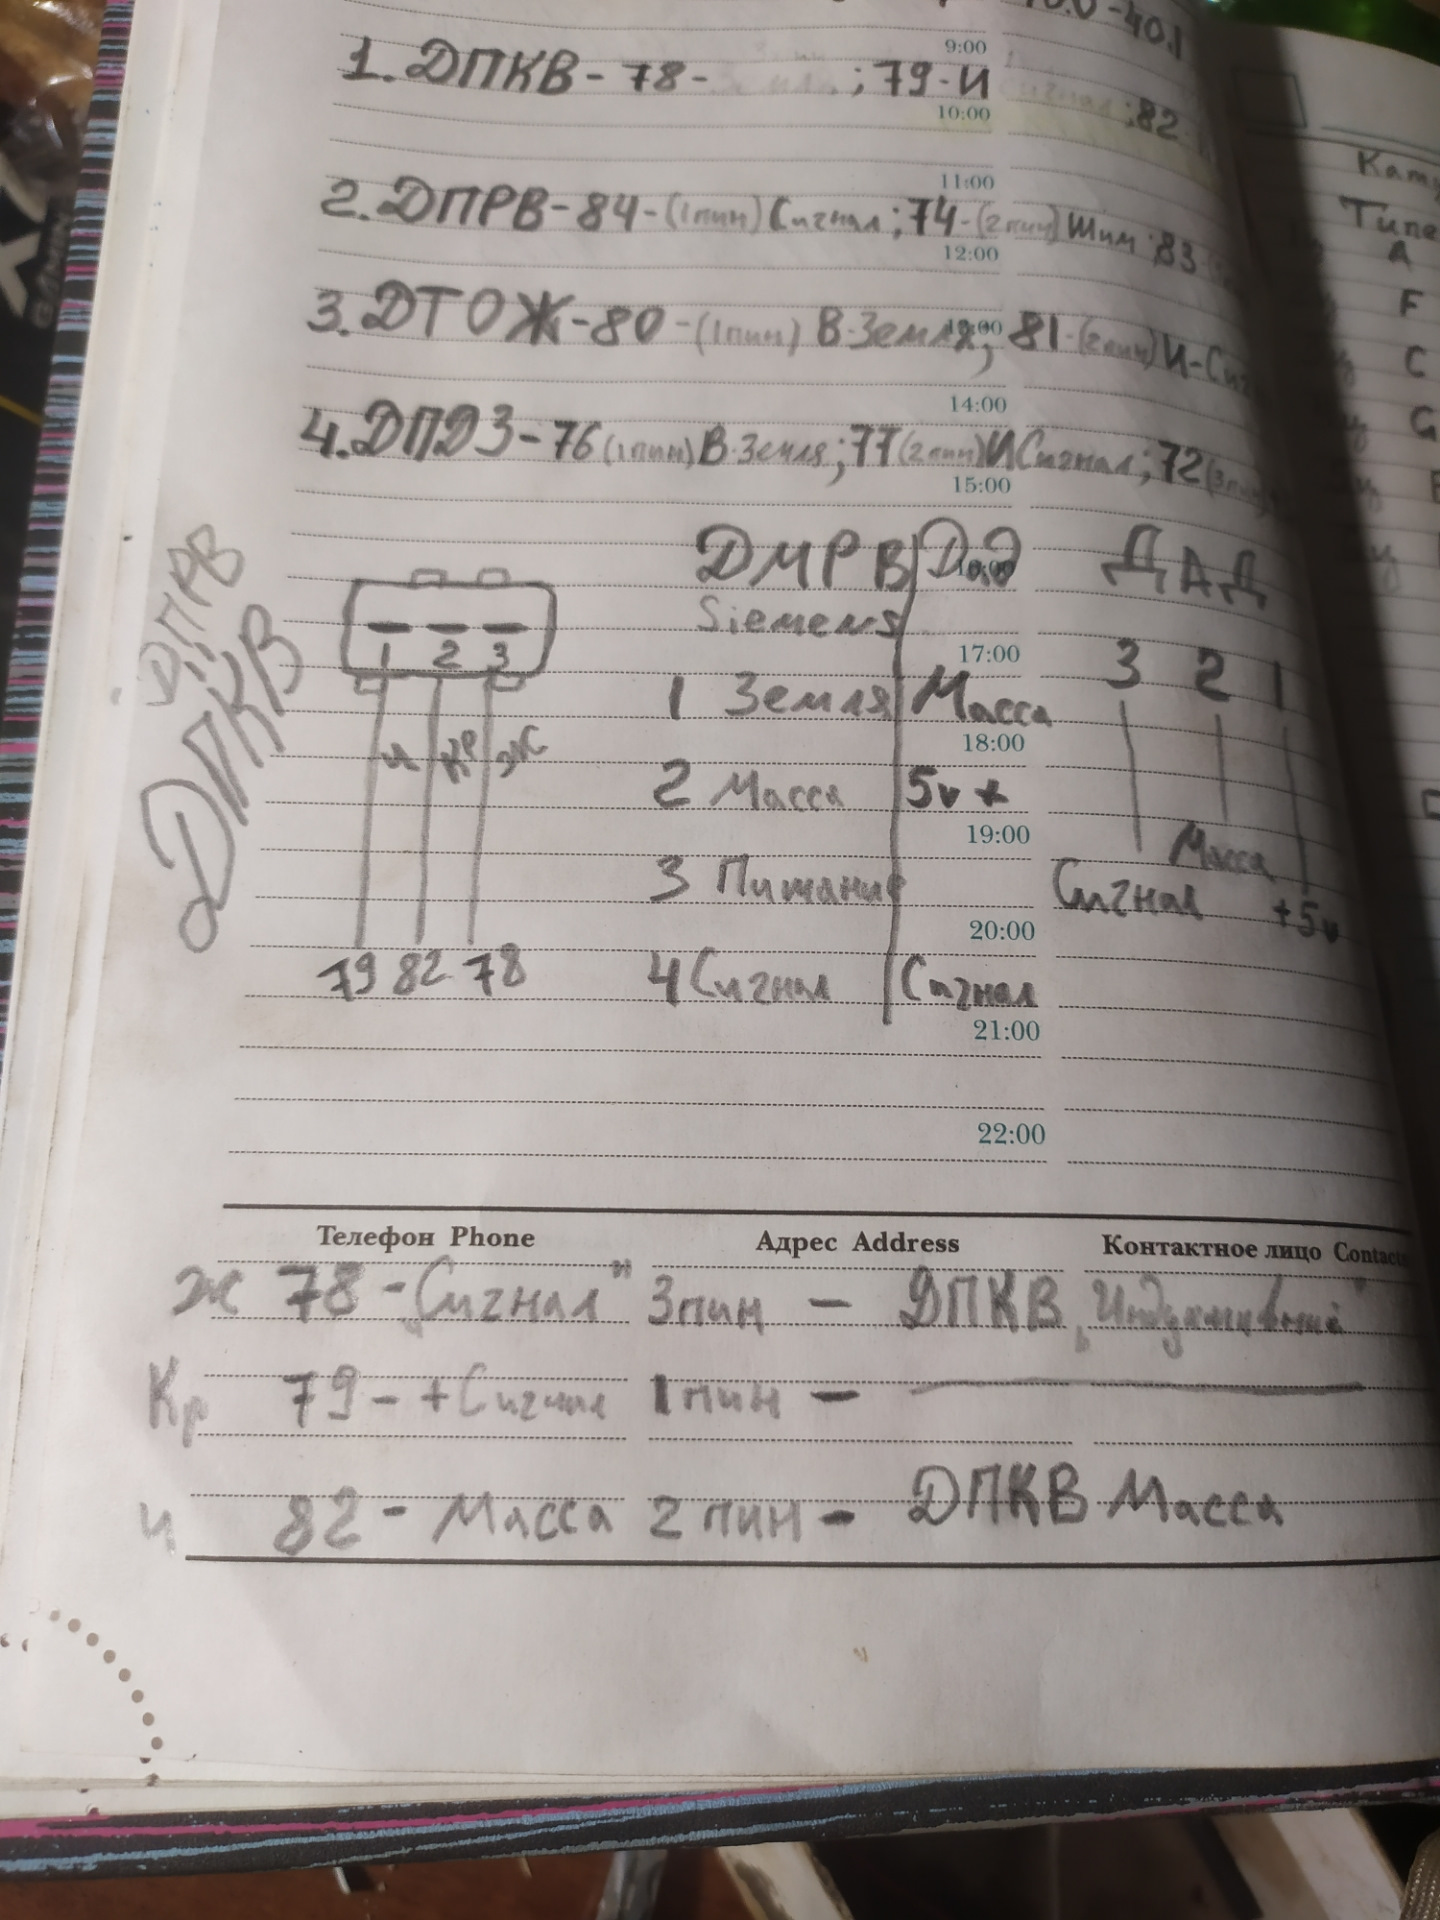 -40.1
9:00
1. ДПКВ - 78 - ; 79 - И ;82
10:00
11:00
2. ДПРВ - 84 - (1пин) Сигнал ; 74 - (2пин) Шим 83
12:00
3. ДТОЖ - 80 - (1пин) В-Земля; 81 (2пин) И-Сиг
13:00
14:00
4. ДПДЗ - 76 (1пин) В-Земля; 77 (2пин) И Сигнал; 72 (3пин
15:00
ДПРВ
ДПКВ
1 2 3
и кр ж
79 82 78
ДМРВ ДаД
16:00
Siemens
17:00
1 Земля Масса
18:00
2 Масса 5v +
19:00
3 Питание
20:00
4 Сигнал Сигнал
21:00
22:00
ДАД
3 2 1
Масса
Сигнал +5v
Телефон Phone Адрес Address Контактное лицо Contact
Ж 78 - "Сигнал" 3пин - ДПКВ "Индуктивный"
Кр 79 - + Сигнал 1пин -
и 82 - Масса 2 пин - ДПКВ Масса
Кату
Типе
A
F
C
G